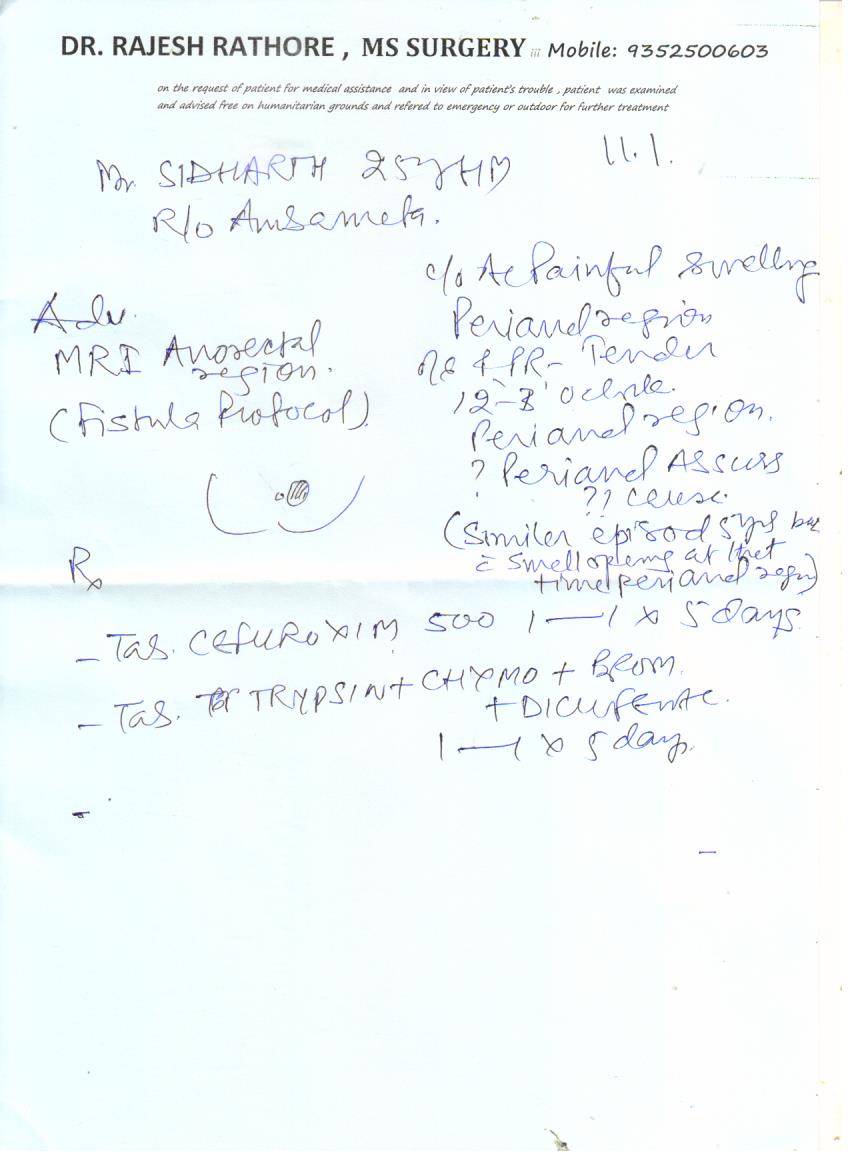 DR. RAJESH RATHORE , MS SURGERY ;;; Mobile: 9352500603
on the request of patient for medical assistance and in view of patient's trouble , patient was examined
and advised free on humanitarian grounds and refered to emergency or outdoor for further treatment
11.1.
Mr. SIDHARTH 25y HM
R/o
c/o Ac Painful swelling
Perianal region
O/E & PR- Tender
12-3' Oclock.
Perianal region.
? Perianal Abscess
?? cause.
(Similer episod 5yrs
c smell opening at that
time perianal region)
Adv.
MRI Anorectal
region.
(Fistula Protocol)
Rx
- Tab. CEFUROXIM 500 1—1 x 5 days
- Tab. TRYPSIN + CHYMO + BROM.
+ DICLOFENAC.
1—1 x 5 days